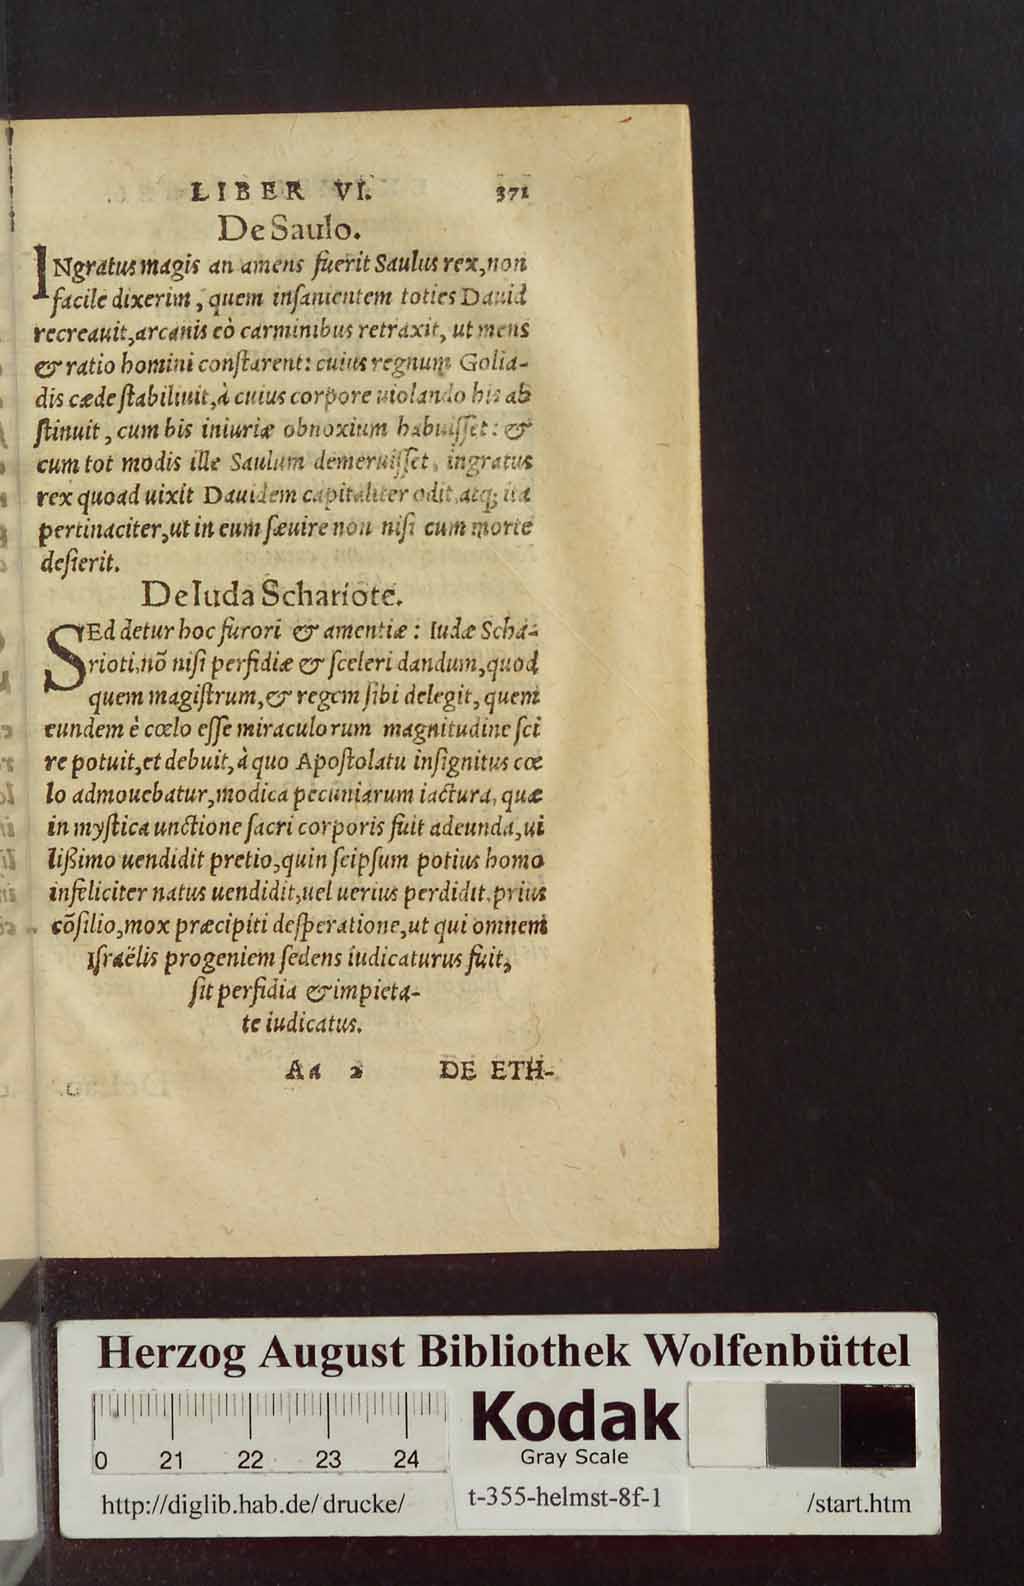 LIBER VI. 371
De Saulo.
INgratus magis an amens fuerit Saulus rex, non
facile dixerim, quem insanientem toties Dauid
recreauit, arcanis eò carminibus retraxit, ut mens
& ratio homini constarent: cuius regnum Golia-
dis cæde stabiliuit, à cuius corpore uiolando bis ab
stinuit, cum bis iniuriæ obnoxium habuisset: &
cum tot modis ille Saulum demeruisset, ingratus
rex quoad uixit Dauidem capitaliter odit, atq; ita
pertinaciter, ut in eum sæuire non nisi cum morte
desierit.
De Iuda Schariote.
SEd detur hoc furori & amentiæ: Iudæ Scha-
rioti, nõ nisi perfidiæ & sceleri dandum, quod
quem magistrum, & regem sibi delegit, quem
eundem è cœlo esse miraculorum magnitudine sci
re potuit, et debuit, à quo Apostolatu insignitus cœ
lo admouebatur, modica pecuniarum iactura, quæ
in mystica unctione sacri corporis fuit adeunda, ui
lißimo uendidit pretio, quin seipsum potius homo
infeliciter natus uendidit, uel uerius perdidit, prius
cõsilio, mox præcipiti desperatione, ut qui omnem
Israëlis progeniem sedens iudicaturus fuit,
sit perfidia & impieta-
te iudicatus.
Aa 2 DE ETH-
Herzog August Bibliothek Wolfenbüttel
0 21 22 23 24
Kodak
Gray Scale
http://diglib.hab.de/drucke/ t-355-helmst-8f-1 /start.htm